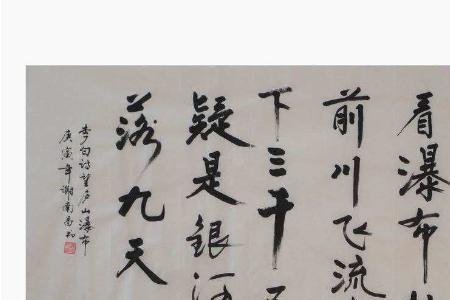 看瀑布
前川飞流
下三千
疑是銀河
落九天
李白诗望庐山瀑布
庚寅年湖南